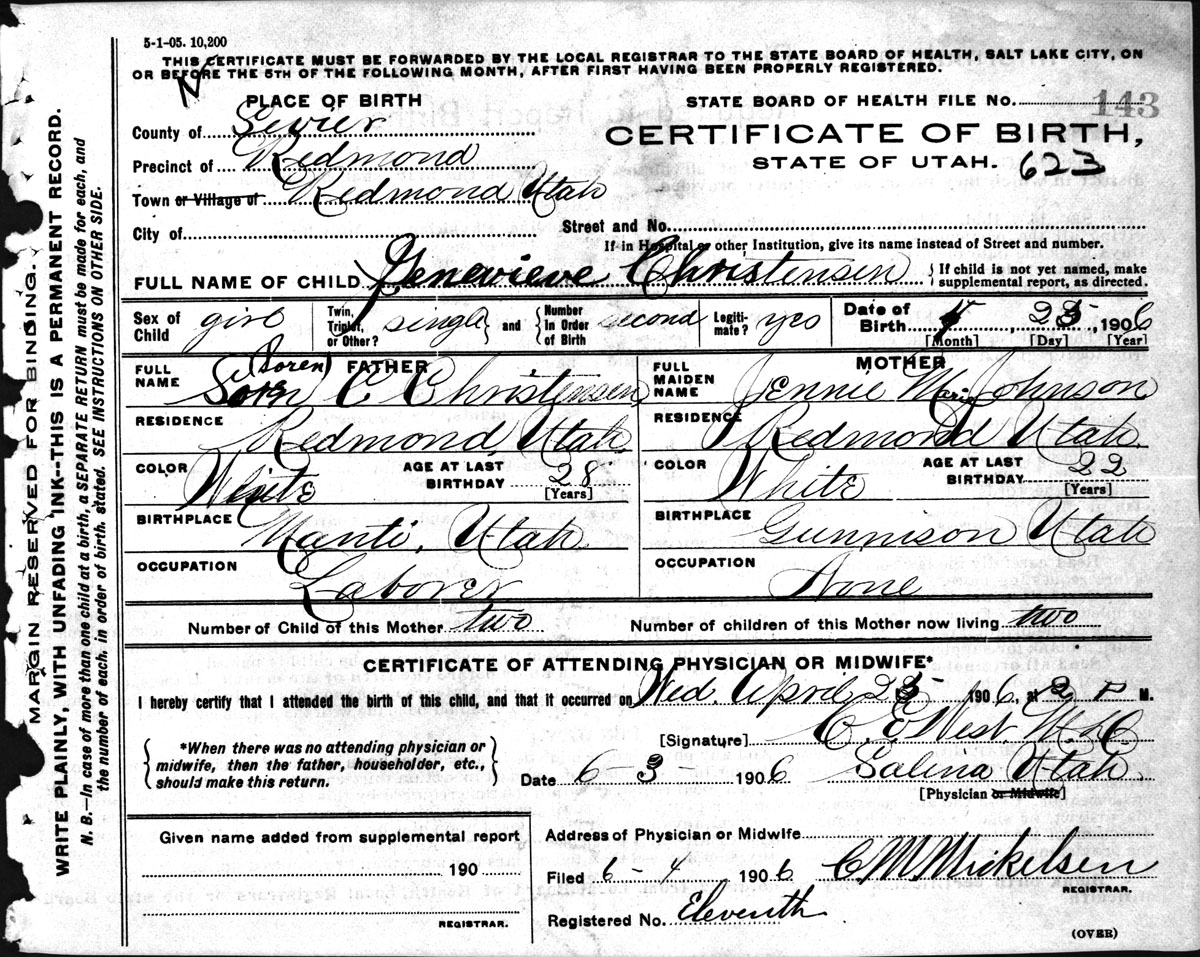 5-1-05. 10,200
THIS CERTIFICATE MUST BE FORWARDED BY THE LOCAL REGISTRAR TO THE STATE BOARD OF HEALTH, SALT LAKE CITY, ON
OR BEFORE THE 5TH OF THE FOLLOWING MONTH, AFTER FIRST HAVING BEEN PROPERLY REGISTERED.
PLACE OF BIRTH
STATE BOARD OF HEALTH FILE NO. 143
County of Sevier
CERTIFICATE OF BIRTH,
Precinct of Redmond
STATE OF UTAH. 623
Town or Village of Redmond Utah
City of
Street and No.
If in Hospital or other Institution, give its name instead of Street and number.
FULL NAME OF CHILD Genevieve Christensen { If child is not yet named, make
supplemental report, as directed.
Sex of Child girl
Twin, Triplet, or Other? single } and { Number in Order of Birth second
Legitimate? yes
Date of Birth 4, 25, 1906
[Month] [Day] [Year]
FATHER
FULL NAME (Soren) Soren C Christensen
MOTHER
FULL MAIDEN NAME Jennie Marie Johnson
RESIDENCE Redmond, Utah.
RESIDENCE Redmond Utah.
COLOR White AGE AT LAST BIRTHDAY 28 [Years]
COLOR White AGE AT LAST BIRTHDAY 22 [Years]
BIRTHPLACE Manti, Utah.
BIRTHPLACE Gunnison Utah
OCCUPATION Laborer
OCCUPATION None
Number of Child of this Mother two Number of children of this Mother now living two
CERTIFICATE OF ATTENDING PHYSICIAN OR MIDWIFE*
I hereby certify that I attended the birth of this child, and that it occurred on Wed. April 25 1906, at 2 P M.
{ *When there was no attending physician or
midwife, then the father, householder, etc.,
should make this return. }
[Signature] C. E West M. D
Date 6-3- 1906 Salina Utah.
[Physician or Midwife]
Given name added from supplemental report
190
REGISTRAR.
Address of Physician or Midwife
Filed 6-4 1906 C. M Mickelsen
REGISTRAR.
Registered No. Eleventh
(OVER)
MARGIN RESERVED FOR BINDING.
WRITE PLAINLY, WITH UNFADING INK--THIS IS A PERMANENT RECORD.
N. B.—In case of more than one child at a birth, a SEPARATE RETURN must be made for each, and
the number of each, in order of birth, stated. SEE INSTRUCTIONS ON OTHER SIDE.